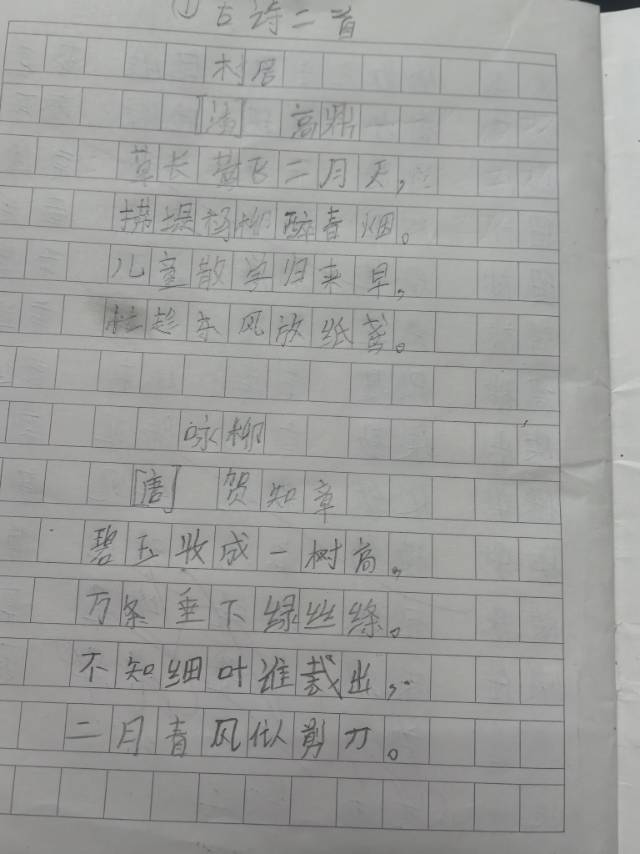 ①古诗二首
村居
[清] 高鼎
草长莺飞二月天,
拂堤杨柳醉春烟。
儿童散学归来早,
忙趁东风放纸鸢。
咏柳
[唐] 贺知章
碧玉妆成一树高,
万条垂下绿丝绦。
不知细叶谁裁出,
二月春风似剪刀。